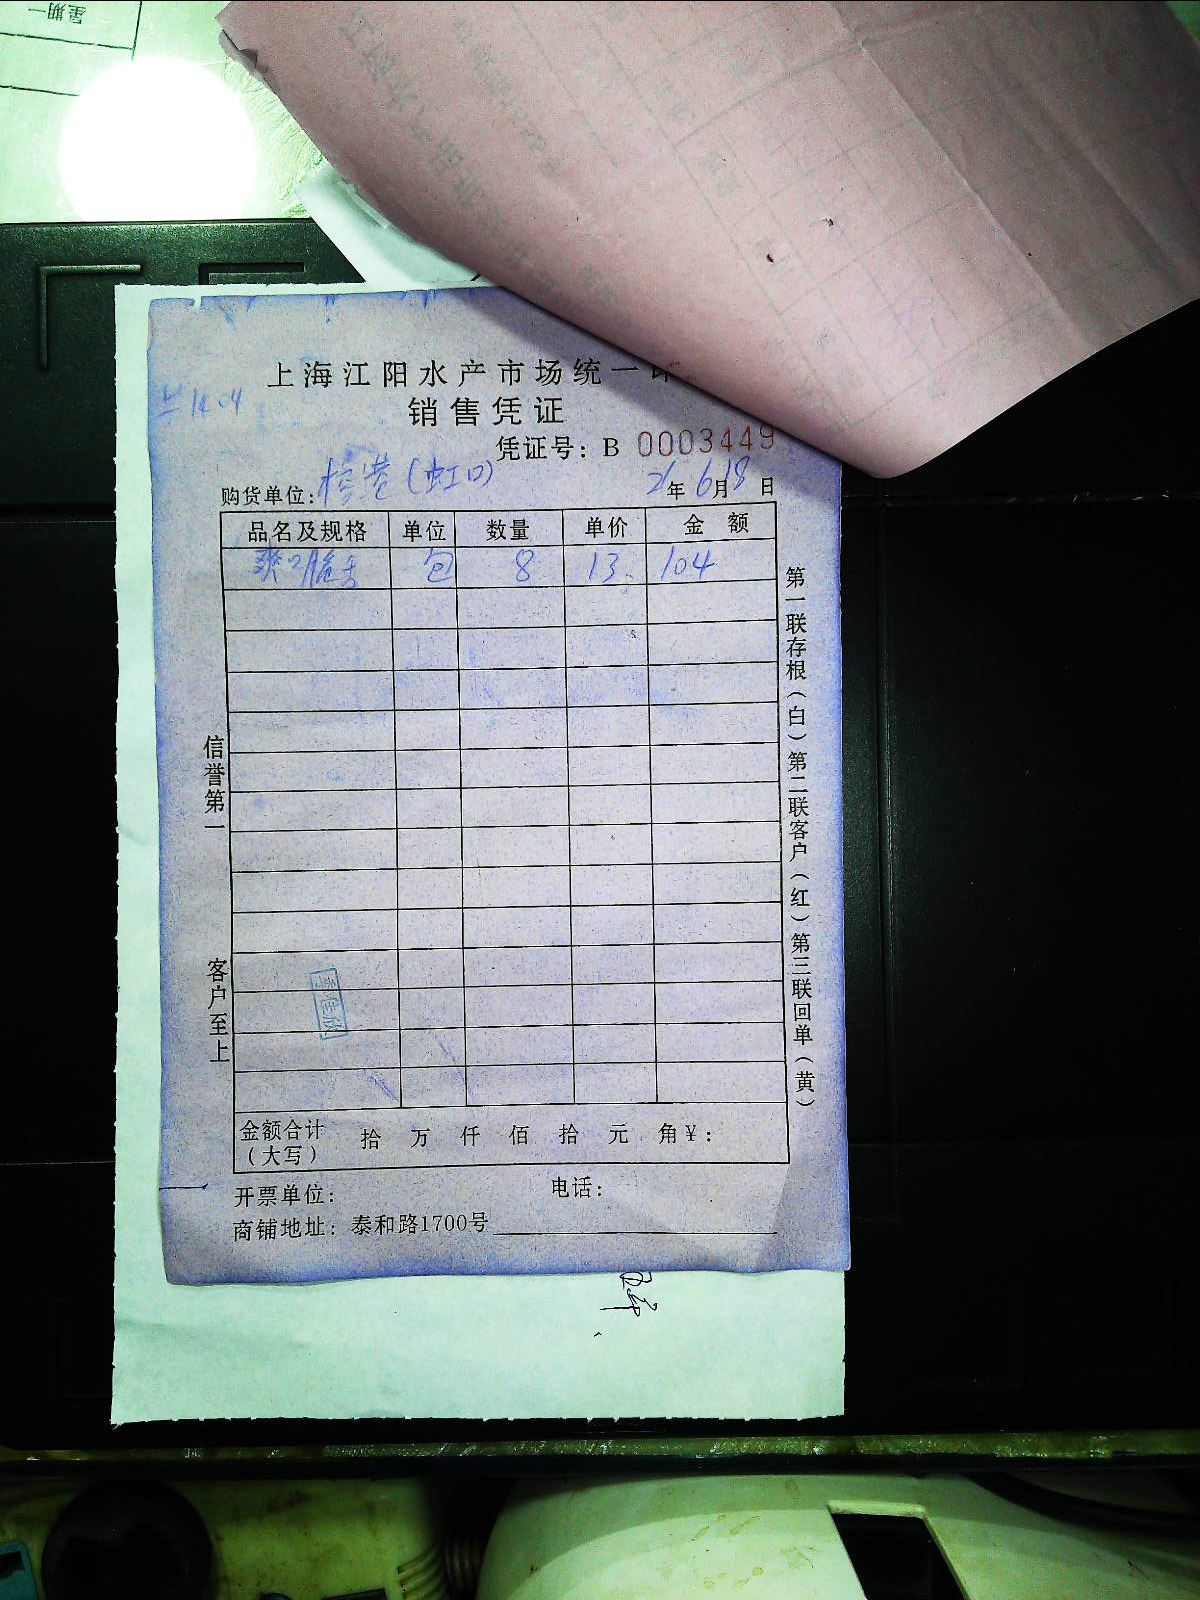 星期一
上海江阳水产市场统一印
销售凭证
兰14.04
凭证号：B 0003449
购货单位：(虹口) 21年6月18日
品名及规格 单位 数量 单价 金额
爽口脆舌 包 8 13 104
信誉第一
客户至上
第一联存根（白）第二联客户（红）第三联回单（黄）
金额合计（大写） 拾 万 仟 佰 拾 元 角¥：
开票单位： 电话：
商铺地址：泰和路1700号